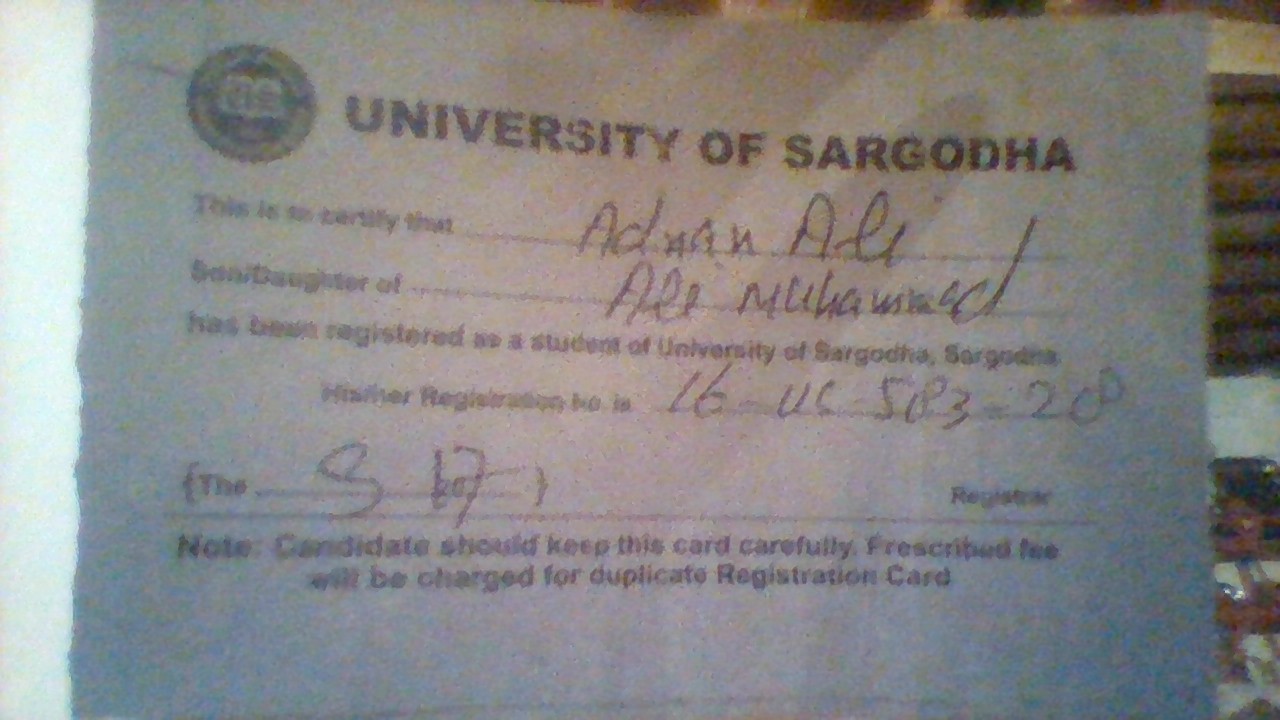 UNIVERSITY OF SARGODHA
This is to certify that Adnan Ali
Son/Daughter of Ali Muhammad
has been registered as a student of University of Sargodha, Sargodha
His/Her Registration No. is 16-UC-583-20
(The )
Registrar
Note: Candidate should keep this card carefully. Prescribed fee
will be charged for duplicate Registration Card